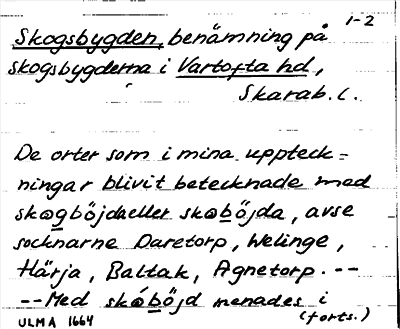 1-2
Skogsbygden, benämning på
skogsbygderna i Vartofta hd,
Skarab. l.
De orter som i mina uppteck=
ningar blivit betecknade med
skogböjda eller skoböjda, avse
socknarne Daretorp, Velinge,
Härja, Baltak, Agnetorp. --
-- Med skóböjd menades i
(forts.)
ULMA 1664